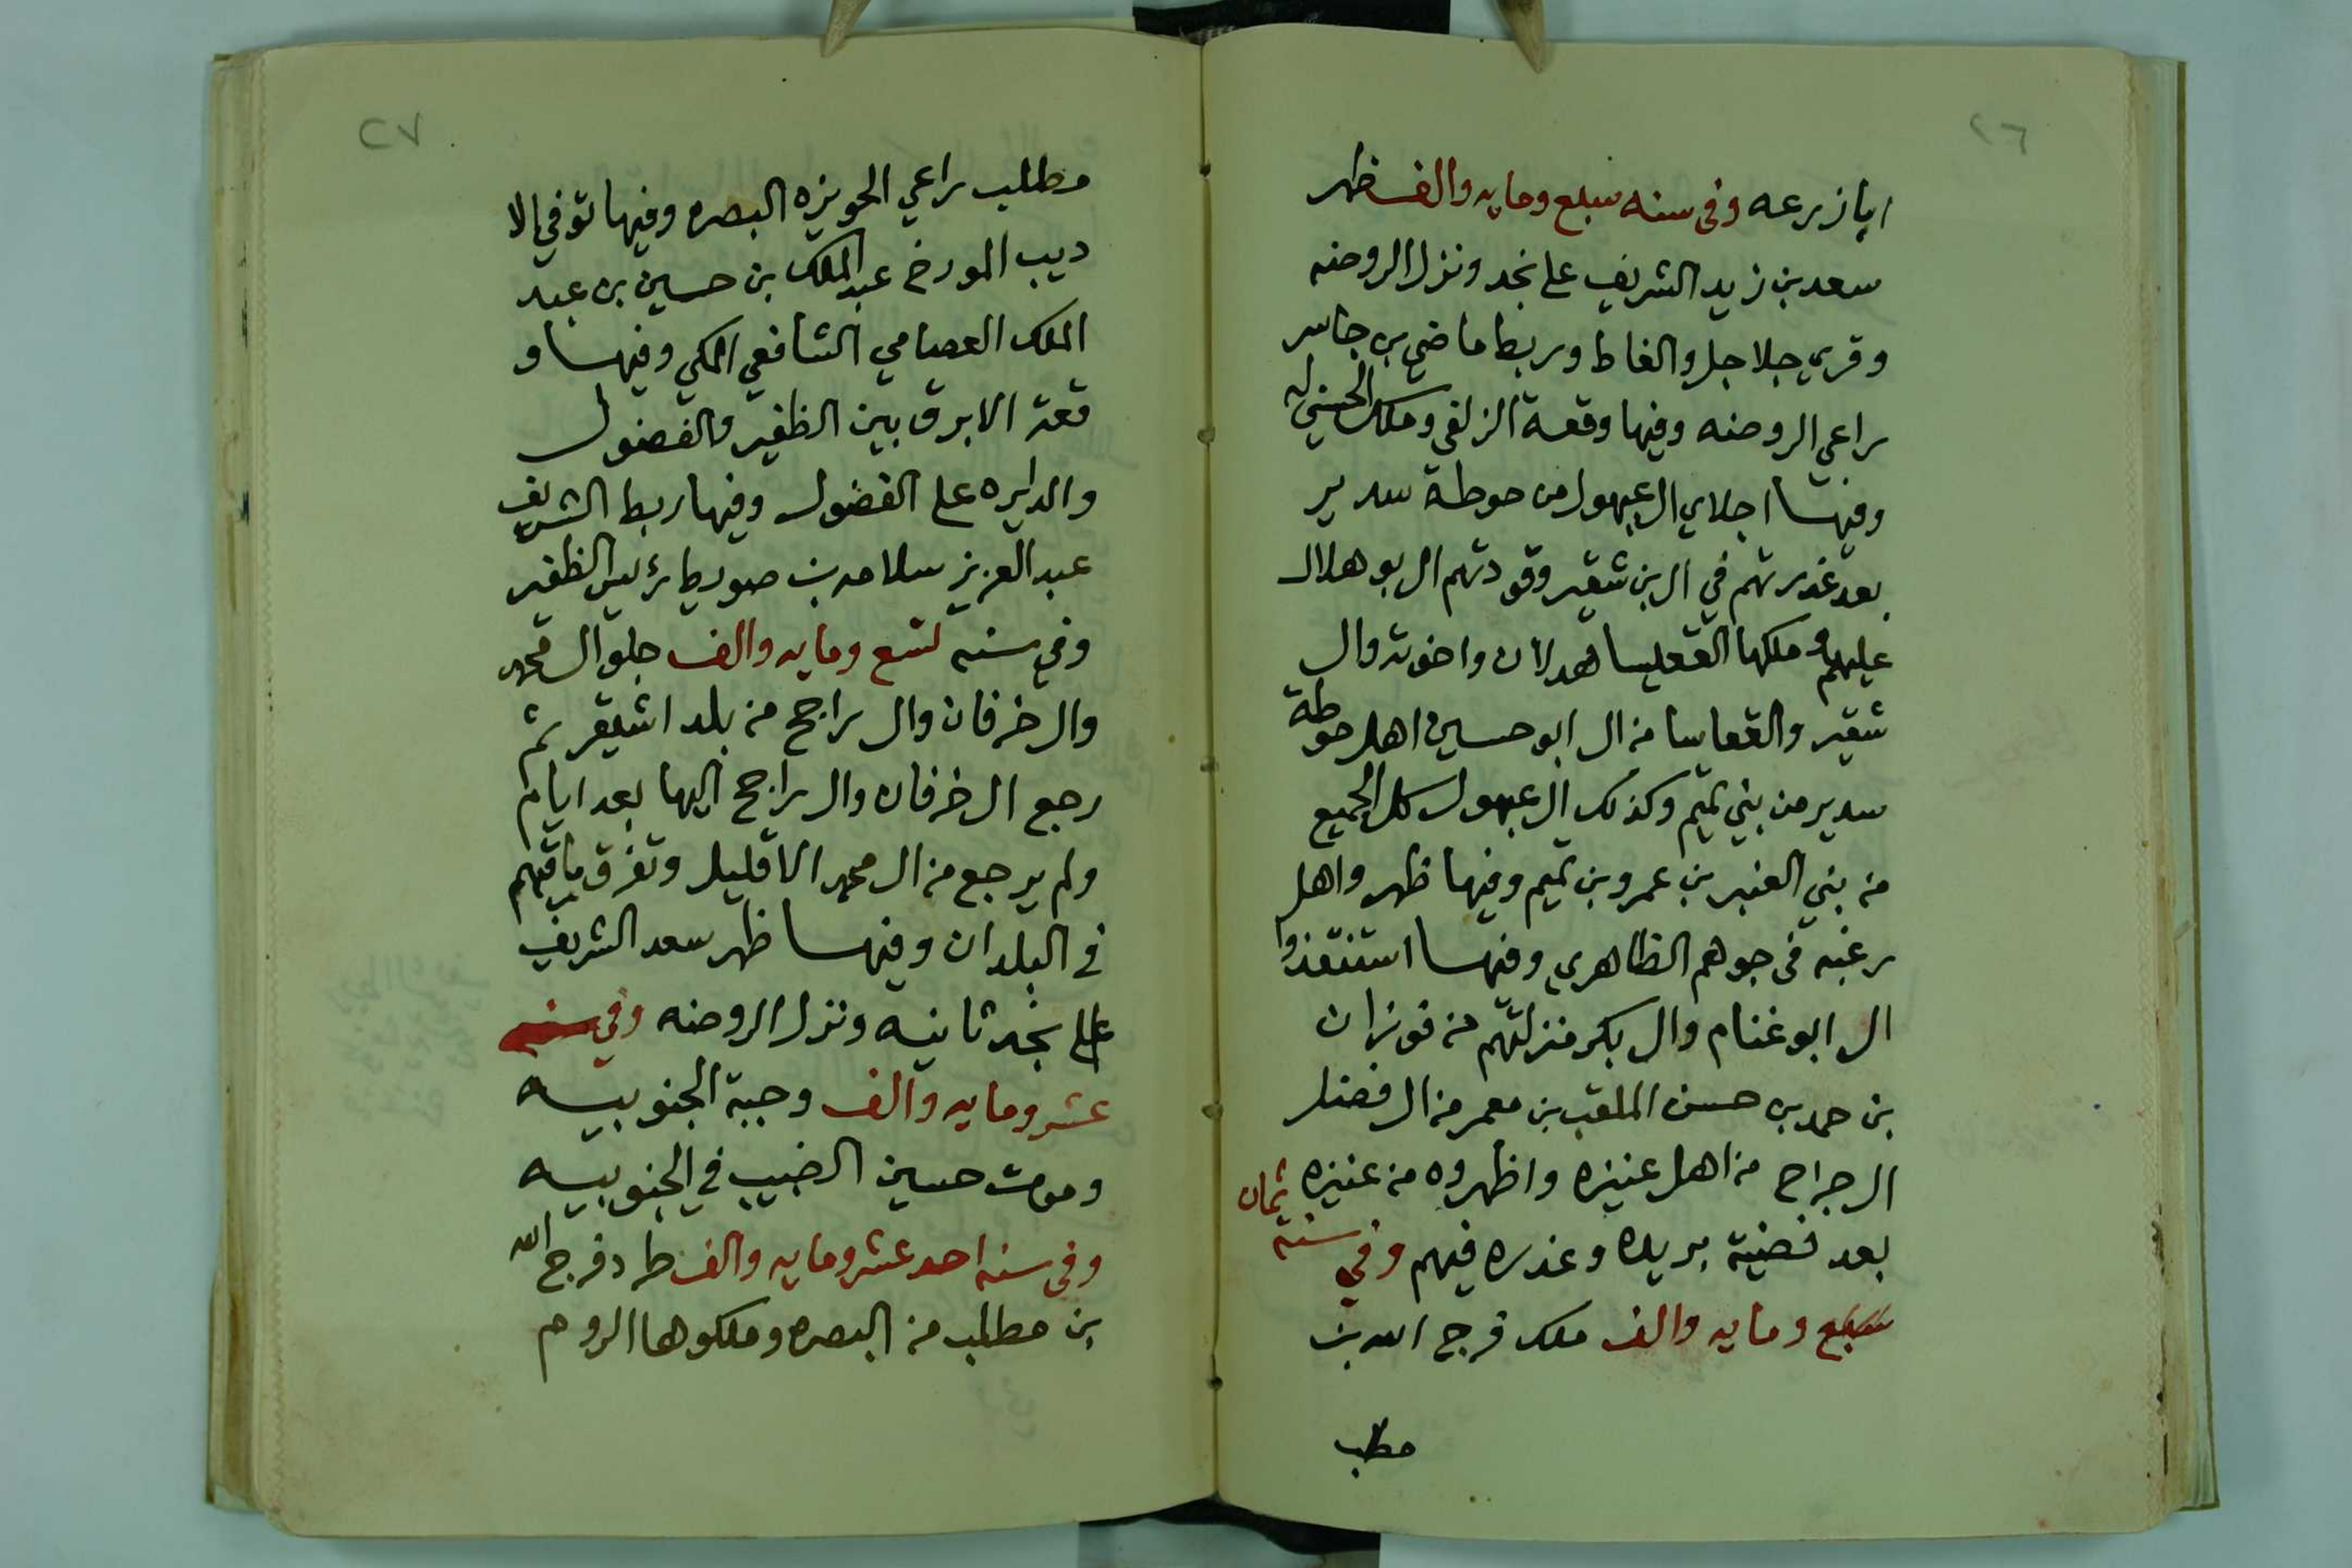 ٢٦
ابا زرعه وفي سنه سبع ومايه والف ظهر
سعد بن زيد الشريف على نجد ونزل الروضه
وقري جلاجل والغاط وربط ماضي بن جاسر
راعي الروضه وفيها وقعة الزلفي وملك الحسني له
وفيها اجلاي ال عبهول من حوطة سدير
بعد غدرتهم في ال بن شقير وقودتهم ال بو هلال
عليهم وملكها القعيسا هدلان واخوته وال
شقير والقعاسا من ال ابو حسين اهل حوطة
سدير من بني تميم وكذلك ال عبهول كل الجميع
من بني العنبر بن عمرو بن تميم وفيها ظهر واهل
رغبه في جوهم الظاهري وفيها استنقذوا
ال ابو غنام وال بكر منزلتهم من فوزان
بن حمد بن حسن الملقب بن معمر من ال فضل
ال جراح من اهل عنيزه واظهروه من عنيزه
بعد قضية بريده وغدره فيهم وفي سنة ثمان
سبع ومايه والف ملك فرج الله بن
مطلب
٢٧
مطلب راعي الحويزه البصره وفيها توفي الا
ديب المورخ عبد الملك بن حسين بن عبد
الملك العصامي الشافعي المكي وفيها و
قعة الابرق بين الظفير والفضول
والدايره على الفضول وفيها ربط الشريف
عبد العزيز سلامه بن صويط رئيس الظفير
وفي سنه تسع ومايه والف جلو ال محمد
وال خرفان وال راجح من بلد اشيقر ثم
رجع ال خرفان وال راجح اليها بعد ايام
ولم يرجع من ال محمد الا قليل وتفرق باقيهم
في البلدان وفيها ظهر سعد الشريف
على نجد ثانيه ونزل الروضه وفي سنه
عشر ومايه والف وجبة الجنوبيه
وموت حسين الضبيب في الجنوبيه
وفي سنه احد عشر ومايه والف طرد فرج الله
بن مطلب من البصره وملكوها الروم